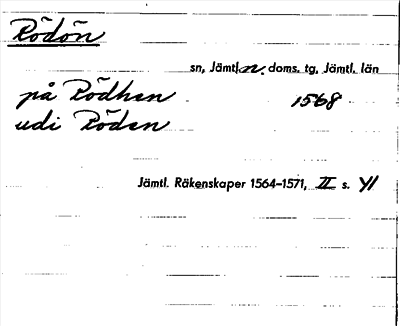 Rödön
sn, Jämtl. n. doms. tg, Jämtl. län
på Rödhen 1568
udi Röden
Jämtl. Räkenskaper 1564-1571, II s.